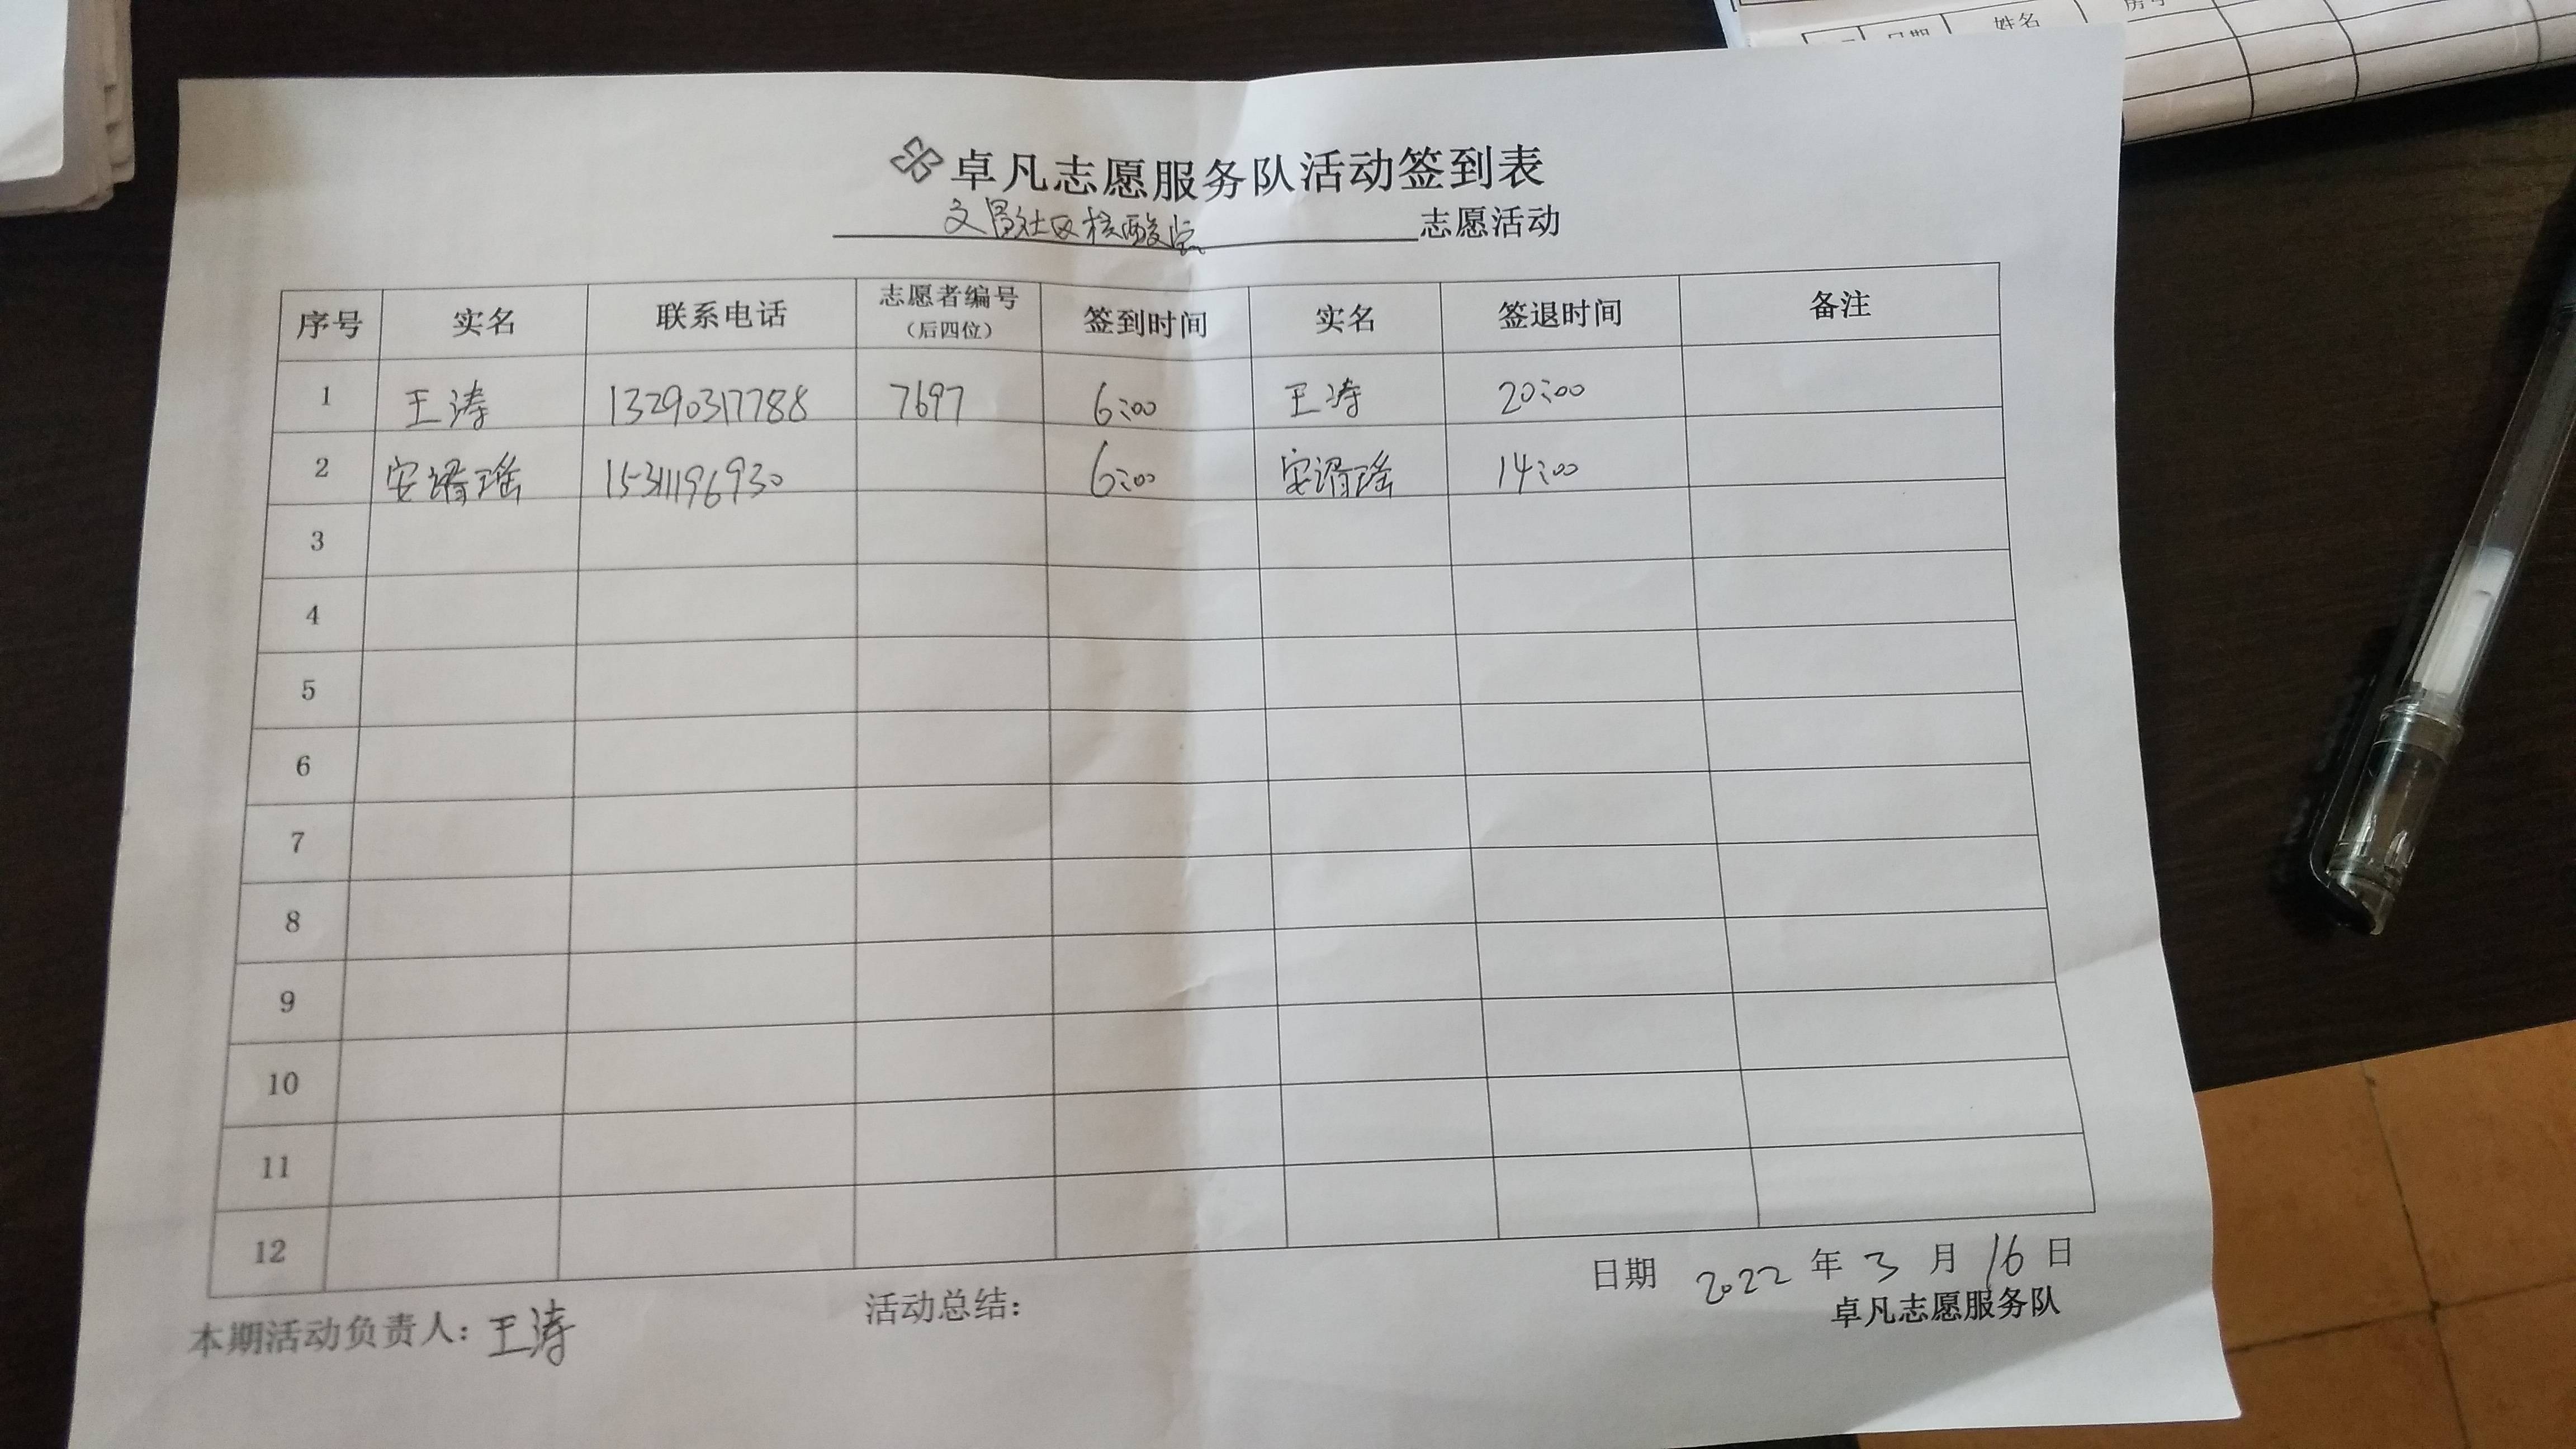 日期 姓名 房号
卓凡志愿服务队活动签到表
文昌社区核酸点 志愿活动
序号 实名 联系电话 志愿者编号（后四位） 签到时间 实名 签退时间 备注
1 王涛 13290317788 7697 6:00 王涛 20:00
2 安谞瑶 15311196930 6:00 安谞瑶 14:00
3
4
5
6
7
8
9
10
11
12
日期 2022 年 3 月 16 日
本期活动负责人：王涛 活动总结： 卓凡志愿服务队